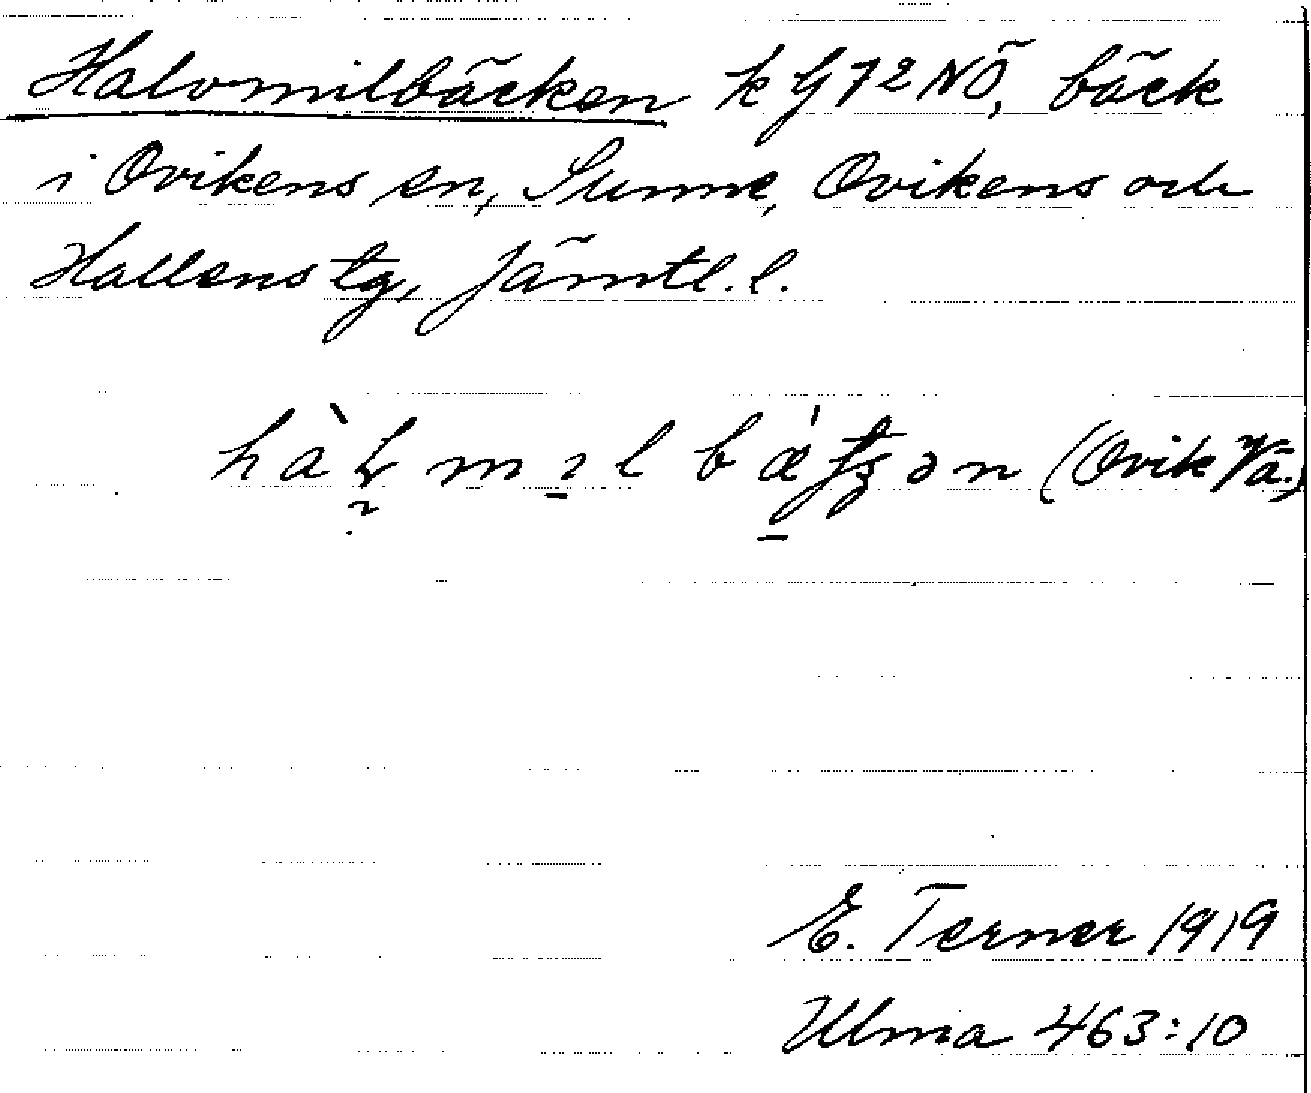 Halvmilbäcken k G72NÖ, bäck
i Ovikens sn, Sunne, Ovikens och
Hallens tg, Jämtl. l.
(Ovik Vä.)
E. Terner 1919
Ulma 463:10